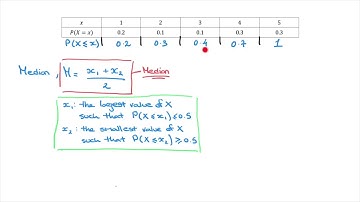 x 1 2 3 4 5
P(X = x) 0.2 0.1 0.1 0.3 0.3
P(X≤x) 0.2 0.3 0.4 0.7 1
Median, M = x₁ + x₂ / 2 Median
x₁: the largest value of X
such that P(X≤x₁)≤0.5
x₂: the smallest value of X
such that P(X≤x₂)≥0.5